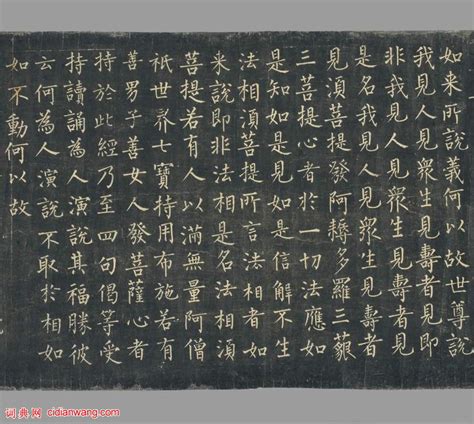 如来所說義何以故世尊說
我見人見衆生見壽者見即
非我見人見衆生見壽者見
是名我見人見衆生見壽者
見湏菩提發阿耨多羅三藐
三菩提心者於一切法應如
是知如是見如是信解不生
法相湏菩提所言法相者如
来說即非法相是名法相湏
菩提若有人以滿無量阿僧
祇世界七寶持用布施若有
善男子善女人發菩薩心者
持於此經乃至四句偈等受
持讀誦為人演說其福勝彼
云何為人演說不取於相如
如不動何以故
词典网 cidianwang.com